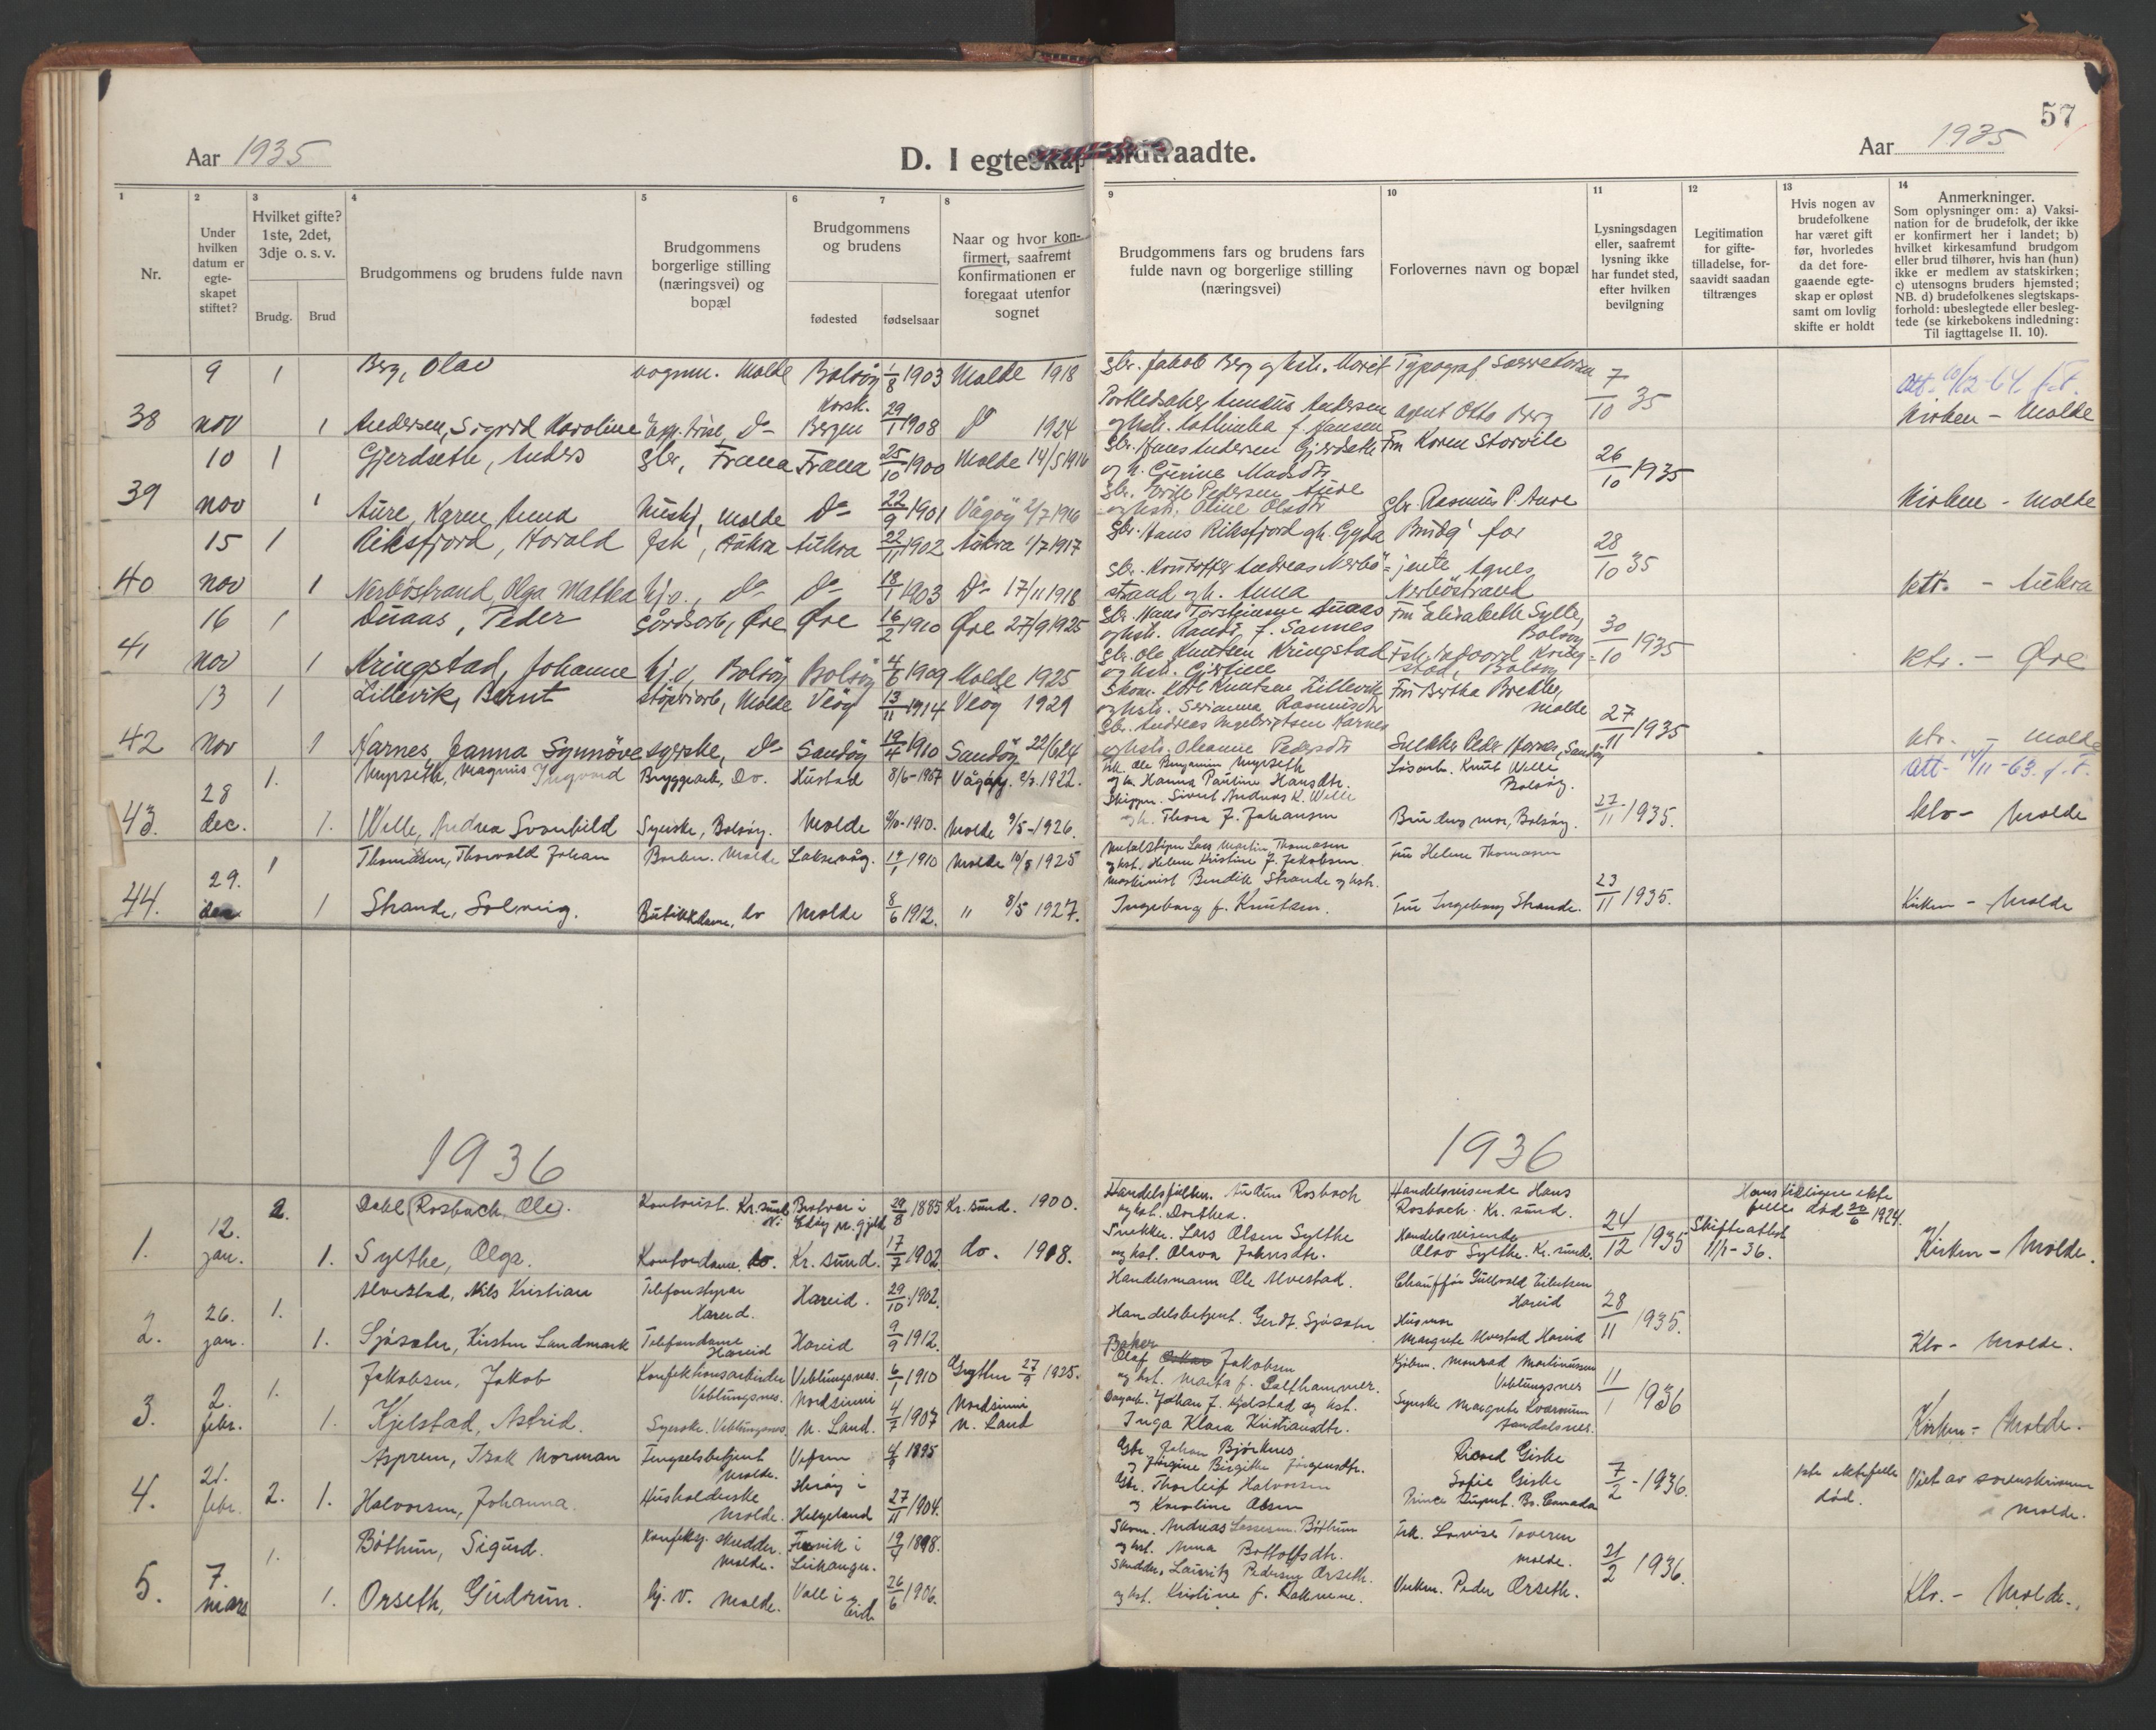 57
Aar 1935
D. I egteskap indtraadte.
Aar 1935
1
2
3
4
5
6
7
8
9
10
11
12
13
14
Nr.
Under hvilken datum er egte-skapet stiftet?
Hvilket gifte? 1ste, 2det, 3dje o. s. v.
Brudg.
Brud
Brudgommens og brudens fulde navn
Brudgommens borgerlige stilling (næringsvei) og bopæl
Brudgommens og brudens
fødested
fødselsaar
Naar og hvor kon-firmert, saafremt konfirmationen er foregaat utenfor sognet
Brudgommens fars og brudens fars fulde navn og borgerlige stilling (næringsvei)
Forlovernes navn og bopæl
Lysningsdagen eller, saafremt lysning ikke har fundet sted, efter hvilken bevilgning
Legitimation for gifte-tilladelse, for-saavidt saadan tiltrænges
Hvis nogen av brudefolkene har været gift før, hvorledes da det fore-gaaende egte-skap er opløst samt om lovlig skifte er holdt
Anmerkninger.
Som oplysninger om: a) Vaksi-nation for de brudefolk, der ikke er konfirmert her i landet; b) hvilket kirkesamfund brudgom eller brud tilhører, hvis han (hun) ikke er medlem av statskirken; c) utensogns bruders hjemsted; NB. d) brudefolkenes slegtskaps-forhold: ubeslegtede eller beslegtede (se kirkebokens indledning: Til iagttagelse II. 10).
9 1 Berg, Olav vognm. Molde Bolsöy 1/8 1903 Molde 1918 Gbr. Jakob Berg og hstr. Marit Typograf 7/10 35
38 nov 1 Andersen, Sigrid Karoline Exp.trise, do Bergen 29/1 1908 do 1924 Agent Otto Berg Kirken - Molde
10 1 Gjerdseth, Anders Gbr., Fræna Fræna 25/10 1900 Molde 14/5 1916 Gbr. Hans Andersen Gjerdseth Fru Karen Storvik 26/10 1935
39 nov 1 Aure, Karen Anna Hushj, Molde do 22/9 1901 Vågöy Gbr. Erik Pedersen Aure og hstr. Oline Olsdtr Gbr. Rasmus P. Aure Kirken - Molde
15 1 Riksfjord, Harald fsk, Aukra Aukra 22/11 1902 Aukra 1/7 1917 Gbr. Hans Riksfjord og h. Gyda Brudg' far 28/10 35
40 nov 1 Nerböstrand, Olga Mathea hj.v., do do 18/1 1903 do 17/11 1918 Gbr. Kristoffer Andreas Nerbö= strand og h. Anna jente Agnes Nerböstrand ktr. - Aukra
16 1 Duaas, Peder Gårdsarb, Øre Øre 16/2 1910 Øre 27/9 1925 Gbr. Hans Torsteinsen Duaas og hstr. Randi f. Sannes Fru Elisabeth Sylte, Bolsöy 30/10 1935
41 nov 1 Kringstad, Johanne hj.v, Bolsöy Bolsöy 4/6 1909 Molde 1925 Gbr. Ole Knutsen Kringstad Kring= stad, Bolsöy ktr. - Øre
13 1 Lillevik, Bernt Molde Veöy 13/11 1914 Veöy 1929 Skom. Karl Knutsen Lillevik og hstr. Serianna Rasmusdtr Fru Bertha Brekke, Molde 27/11 1935
42 nov 1 Harnes, Janna Synnöve syerske, do Sandöy 19/4 1910 Sandöy 22/6 24 Gbr. Andreas Harnes og hstr. Oleanne Pedersdtr Snekker Peder Harnes, Sandöy ktr. - Molde
28 1. Myrseth, Magnus Ingvard Bryggearb, do. Hustad 8/6-1907 Vågöy. 1922. Ole Benjamin Myrseth og h. Hanna Pauline Hansdtr. Løsarb. Knut Welle Bolsöy. 27/11 1935. Att. 14/11-63. f.t.
43. dec. 1. Welle, Andrea Svanhild Syerske, Bolsöy. Molde 1910. Molde 9/5-1926. Skipper. Sivert Andreas K. Welle og h. Thora f. Johansen Brudens mor, Bolsöy. Ktr - Molde
29. 1 Thomasen, Thorvald Johan Molde Laksevåg. 19/1 1910 Molde 10/5 1925 Lars Martin Thomasen og hst. Helene Kristine f. Jakobsen. Fru Helene Thomasen 23/11 1935.
44. dec 1 Strande, Solveig. Butikkdame, do Molde 8/6 1912. " 8/5 1927. Maskinist Bendik Strande og hstr. Ingeborg f. Knutsen. Fru Ingeborg Strande. Kirken - Molde
1936
1936
12. 2. Dahl (Rosbach, Ole). Kontorist. Kr.sund N. 29/8 1885 Kr. sund. 1900. Rosbach og hst. Dorthea. Handelsreisende Hans Rosbach. Kr. sund. 24/12 1935 Skifteattest 11/1-36. Hans tidligere ekte felle død 20/6 1924.
1. jan. 1. Sylthe, Olga. Kontordame. do. Kr. sund. 17/7 1902 do. 1918. Snekker. Lars Olsen Sylthe og hst. Olava Johnsdtr. Handelsreisende Olav Sylthe. Kr. sund. Kirken - Molde.
26. 1. Alvestad, Nils Kristian Telefonstyrer Hareid. Hareid. 29/10 1902. Handelsmann Ole Alvestad. Chauffør Hareid 28/11 1935.
2. jan. 1. Sjåsæter, Kirsten Landmark Telefondame Hareid Hareid 9/9 1912. Handelsbetjent. Gerdt. Sjåsæter Husmor Margrete Alvestad Hareid Ktr - Molde.
2. 1. Jakobsen, Jakob Konfektionsarbeider Veblungsnes. Veblungsnes. 6/1 1910 Grytten 27/9 1925. Baker Olaf Jakobsen og hst. Marta f. Galthammer. Kjøbm. Monrad Martinussen Veblungsnes 11/1 1936
3. febr. 1. Kjelstad, Astrid. Syerske. Veblungsnes Nordsinni N. Land. 4/7 1907 Nordsinni N. Land Dagarb. Johan J. Kjelstad og hst. Inga Klara Kristiansdtr. Syerske Margrete Kvarnum Åndalsnes. Kirken - Molde.
21. Asprem, Isak Norman Fengselsbetjent Molde. Vefsn 1895 Gbr. Johan Björknes og Jörgine Birgitte Jörgensdtr. Rikard Giske Sofie Giske 7/2-1936. 1ste ektefelle død. Viet av sorenskriveren i Molde.
4. febr. 2. 1. Halvorsen, Johanna. Husholderske Molde. Herøy i Helgeland 27/11 1904. Gbr. Thorleif Halvorsen og Karoline Olsen Prince Rupert. Br. Canada
7. 1. Böthun, Sigurd. Konfeksj. skredder. Molde. Leikanger. 19/4 1898. Skom. Andreas Lassesen Böthun og hst. Anna Bottolfsdtr. Frk. Lovise Toveren Molde. 21/2 1936.
5. mars 1. Orseth, Gudrun. hj. v. Molde. Voll i Eid 26/6 1906. Skredder, Lauritz Pedersen Orseth. og hst. Kristine f. Peder Orseth. Ktr. - Molde.